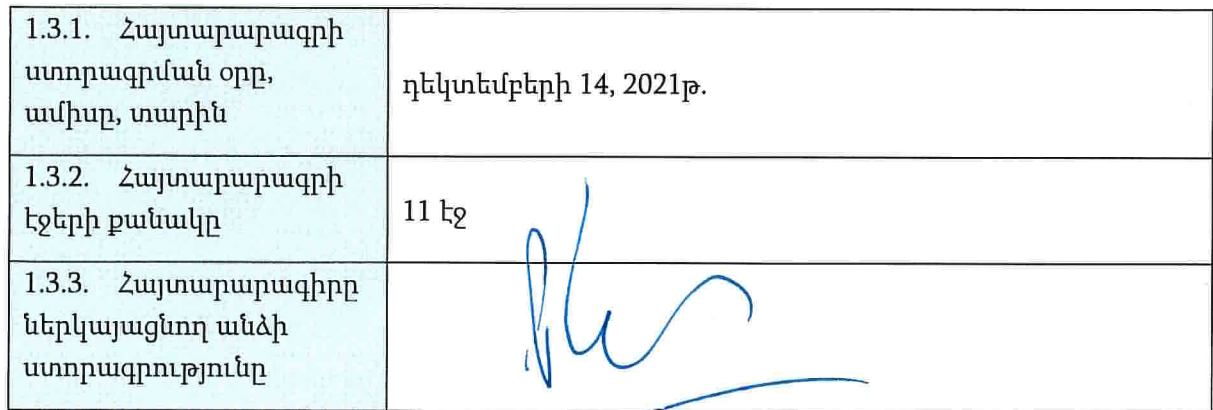 1.3.1. Հայտարարագրի
ստորագրման օրը,
ամիսը, տարին
դեկտեմբերի 14, 2021թ.
1.3.2. Հայտարարագրի
էջերի քանակը
11 էջ
1.3.3. Հայտարարագիրը
ներկայացնող անձի
ստորագրությունը